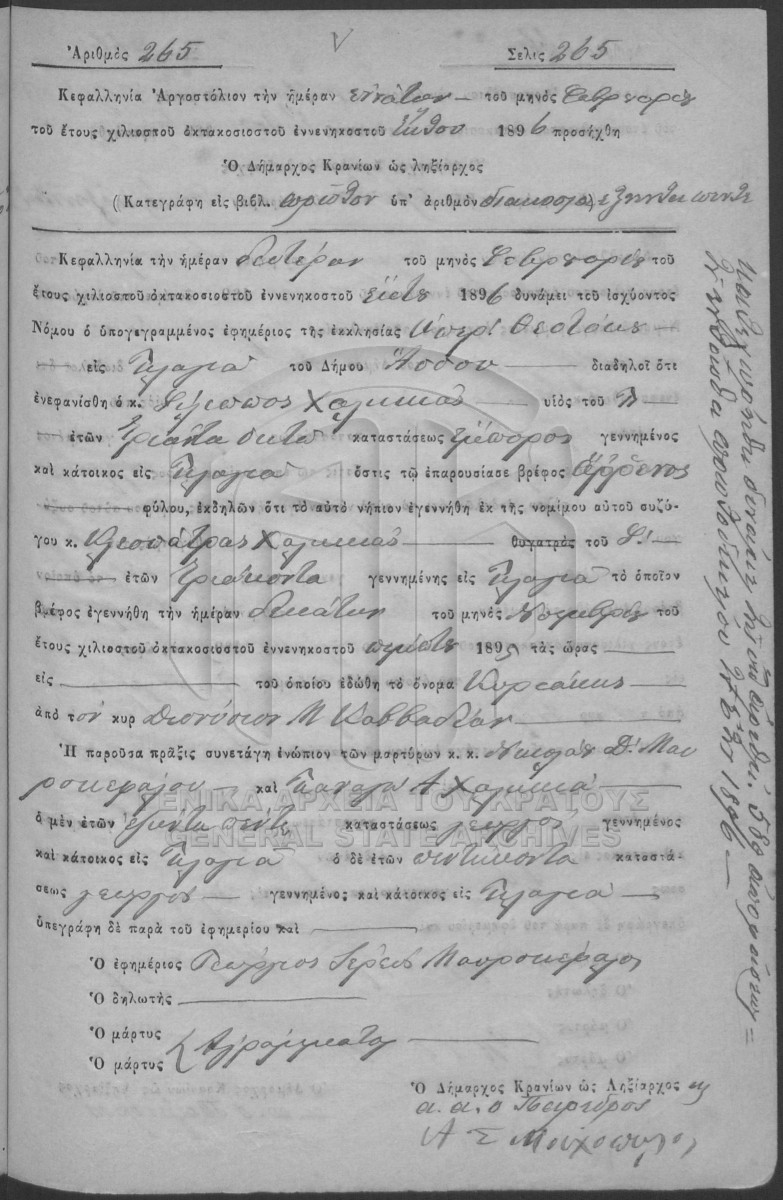 Ἀριθμὸς 265 Σελὶς 265
Κεφαλληνία Ἀργοστόλιον τὴν ἡμέραν ἐννάτην τοῦ μηνὸς Φεβρουαρίου
τοῦ ἔτους χιλιοστοῦ ὀκτακοσιοστοῦ ἐννενηκοστοῦ ἕκτου 1896 προσήχθη
Ὁ Δήμαρχος Κρανίων ὡς ληξίαρχος
(Κατεγράφη εἰς βιβλ. πρῶτον ὑπ' ἀριθμὸν διακόσια ἑξήντα πέντε
Κεφαλληνία τὴν ἡμέραν δευτέραν τοῦ μηνὸς Φεβρουαρίου τοῦ
ἔτους χιλιοστοῦ ὀκτακοσιοστοῦ ἐννενηκοστοῦ ἕκτου 1896 δυνάμει τοῦ ἰσχύοντος
Νόμου ὁ ὑπογεγραμμένος ἐφημέριος τῆς ἐκκλησίας Ὑπερ. Θεοτόκου
εἰς Πλαγιὰ τοῦ Δήμου Ἄσσου διαδηλοῖ ὅτι
ἐνεφανίσθη ὁ κ. Φίλιππος Χαλικιᾶς υἱὸς τοῦ Π
ἐτῶν τριάντα ὀκτὼ καταστάσεως ἔμπορος γεννημένος
καὶ κάτοικος εἰς Πλαγιὰ ὅστις τῷ ἐπαρουσίασε βρέφος ἄῤῥενος
φύλου, ἐκδηλῶν ὅτι τὸ αὐτὸ νήπιον ἐγεννήθη ἐκ τῆς νομίμου αὐτοῦ συζύ-
γου κ. Κλεοπάτρας Χαλικιᾶς θυγατρὸς τοῦ
ἐτῶν τριάκοντα γεννημένης εἰς Πλαγιὰ τὸ ὁποῖον
βρέφος ἐγεννήθη τὴν ἡμέραν δεκάτην τοῦ μηνὸς Νοεμβρίου τοῦ
ἔτους χιλιοστοῦ ὀκτακοσιοστοῦ ἐννενηκοστοῦ πέμπτου 1895 τὰς ὥρας
εἰς τοῦ ὁποίου ἐδώθη τὸ ὄνομα Κυριάκης
ἀπὸ τὸν κυρ Διονύσιον Μ Καββαδίαν
Ἡ παροῦσα πρᾶξις συνετάγη ἐνώπιον τῶν μαρτύρων κ. κ. Νικολάου Δ. Μαυ
ροκεφάλου καὶ Παναγῆ Α Χαλικιᾶ
ὁ μὲν ἐτῶν ἑξήντα πέντε καταστάσεως γεωργὸς γεννημένος
καὶ κάτοικος εἰς Πλαγιὰ ὁ δὲ ἐτῶν πεντήκοντα καταστά-
σεως γεωργὸς γεννημένος καὶ κάτοικος εἰς Πλαγιὰ
ὑπεγράφη δὲ παρὰ τοῦ ἐφημερίου καὶ
Ὁ ἐφημέριος Γεώργιος Ἱερεὺς Μαυροκέφαλος
Ὁ δηλωτὴς
Ὁ μάρτυς
Ὁ μάρτυς Ἀγράμματοι
Ὁ Δήμαρχος Κρανίων ὡς Ληξίαρχος
α. α. ὁ Πάρεδρος
ΓΕΝΙΚΑ ΑΡΧΕΙΑ ΤΟΥ ΚΡΑΤΟΥΣ
GENERAL STATE ARCHIVES